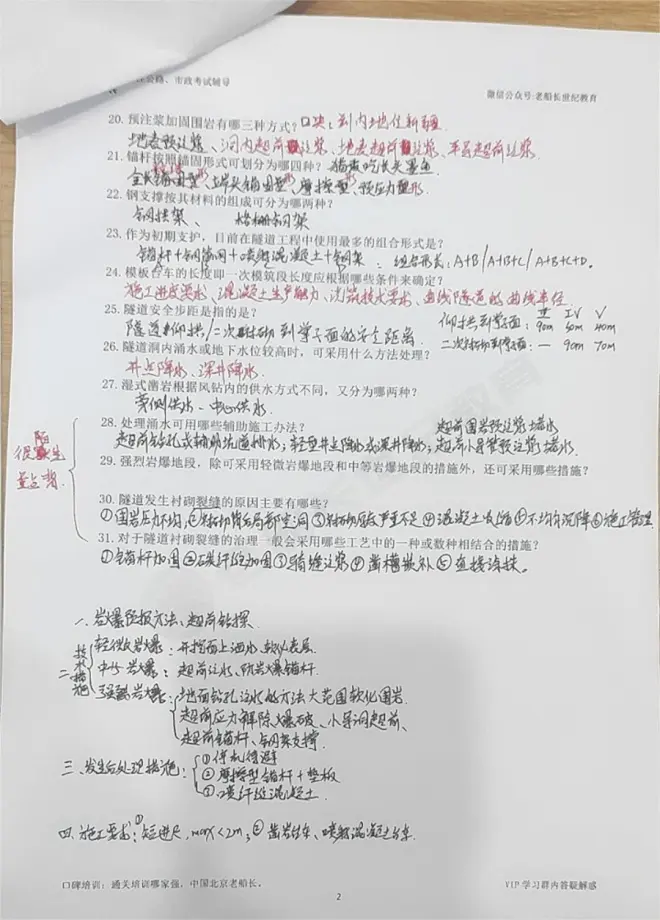 公路、市政考试辅导
微信公众号:老船长世纪教育
20. 预注浆加固围岩有哪三种方式？口决：到内地住新疆
地表预注浆、洞内超前注浆、地表超前注浆、平导超前注浆.
21. 锚杆按照锚固形式可划分为哪四种？
全长锚固型、端头锚固型、摩擦型、预应力型
22. 钢支撑按其材料的组成可分为哪两种？
钢拱架、 格栅钢架
23. 作为初期支护，目前在隧道工程中使用最多的组合形式是？
锚杆+钢筋网+喷射混凝土+钢架 组合形式：A+B/A+B+C/A+B+C+D。
24. 模板台车的长度即一次模筑段长度应根据哪些条件来确定？
施工进度要求、混凝土生产能力、浇筑技术要求、曲线隧道的曲线半径
25. 隧道安全步距是指的是？
III IV V
隧道仰拱/二次衬砌到掌子面的安全距离.
仰拱到掌面： 90m 50m 40m
26. 隧道洞内涌水或地下水位较高时，可采用什么方法处理？
二次衬砌到掌面：— 90m 70m
井点降水、深井降水.
27. 湿式凿岩根据风钻内的供水方式不同，又分为哪两种？
旁侧供水、中心供水.
28. 处理涌水可用哪些辅助施工办法？
超前围岩预注浆堵水
超前钻孔或辅助坑道排水；轻型井点降水或深井降水；超前小导管预注浆堵水.
很陌生
重点背.
29. 强烈岩爆地段，除可采用轻微岩爆地段和中等岩爆地段的措施外，还可采用哪些措施？
30. 隧道发生衬砌裂缝的原因主要有哪些？
①围岩压力不均，②衬砌背后局部空洞③衬砌厚度严重不足④混凝土收缩⑤不均匀沉降⑥施工管理
31. 对于隧道衬砌裂缝的治理一般会采用哪些工艺中的一种或数种相结合的措施？
①锚杆加固②碳纤维加固③骑缝注浆④凿槽嵌补⑤直接涂抹。
一. 岩爆预报方法、超前钻探
二、技术措施
轻微岩爆：开挖面上洒水软化表层
中等岩爆：超前注水、防岩爆锚杆.
强烈岩爆：地面钻孔注水的方法大范围软化围岩
超前应力解除爆破、小导洞超前、
超前锚杆、钢架支撑
三、发生后处理措施：①停机待避
②摩擦型锚杆+垫板
③喷纤维混凝土.
四. 施工要求：①短进尺，max<2m；②凿岩台车、喷射混凝土台车.
口碑培训：通关培训哪家强，中国北京老船长。
VIP 学习群内答疑解惑
2